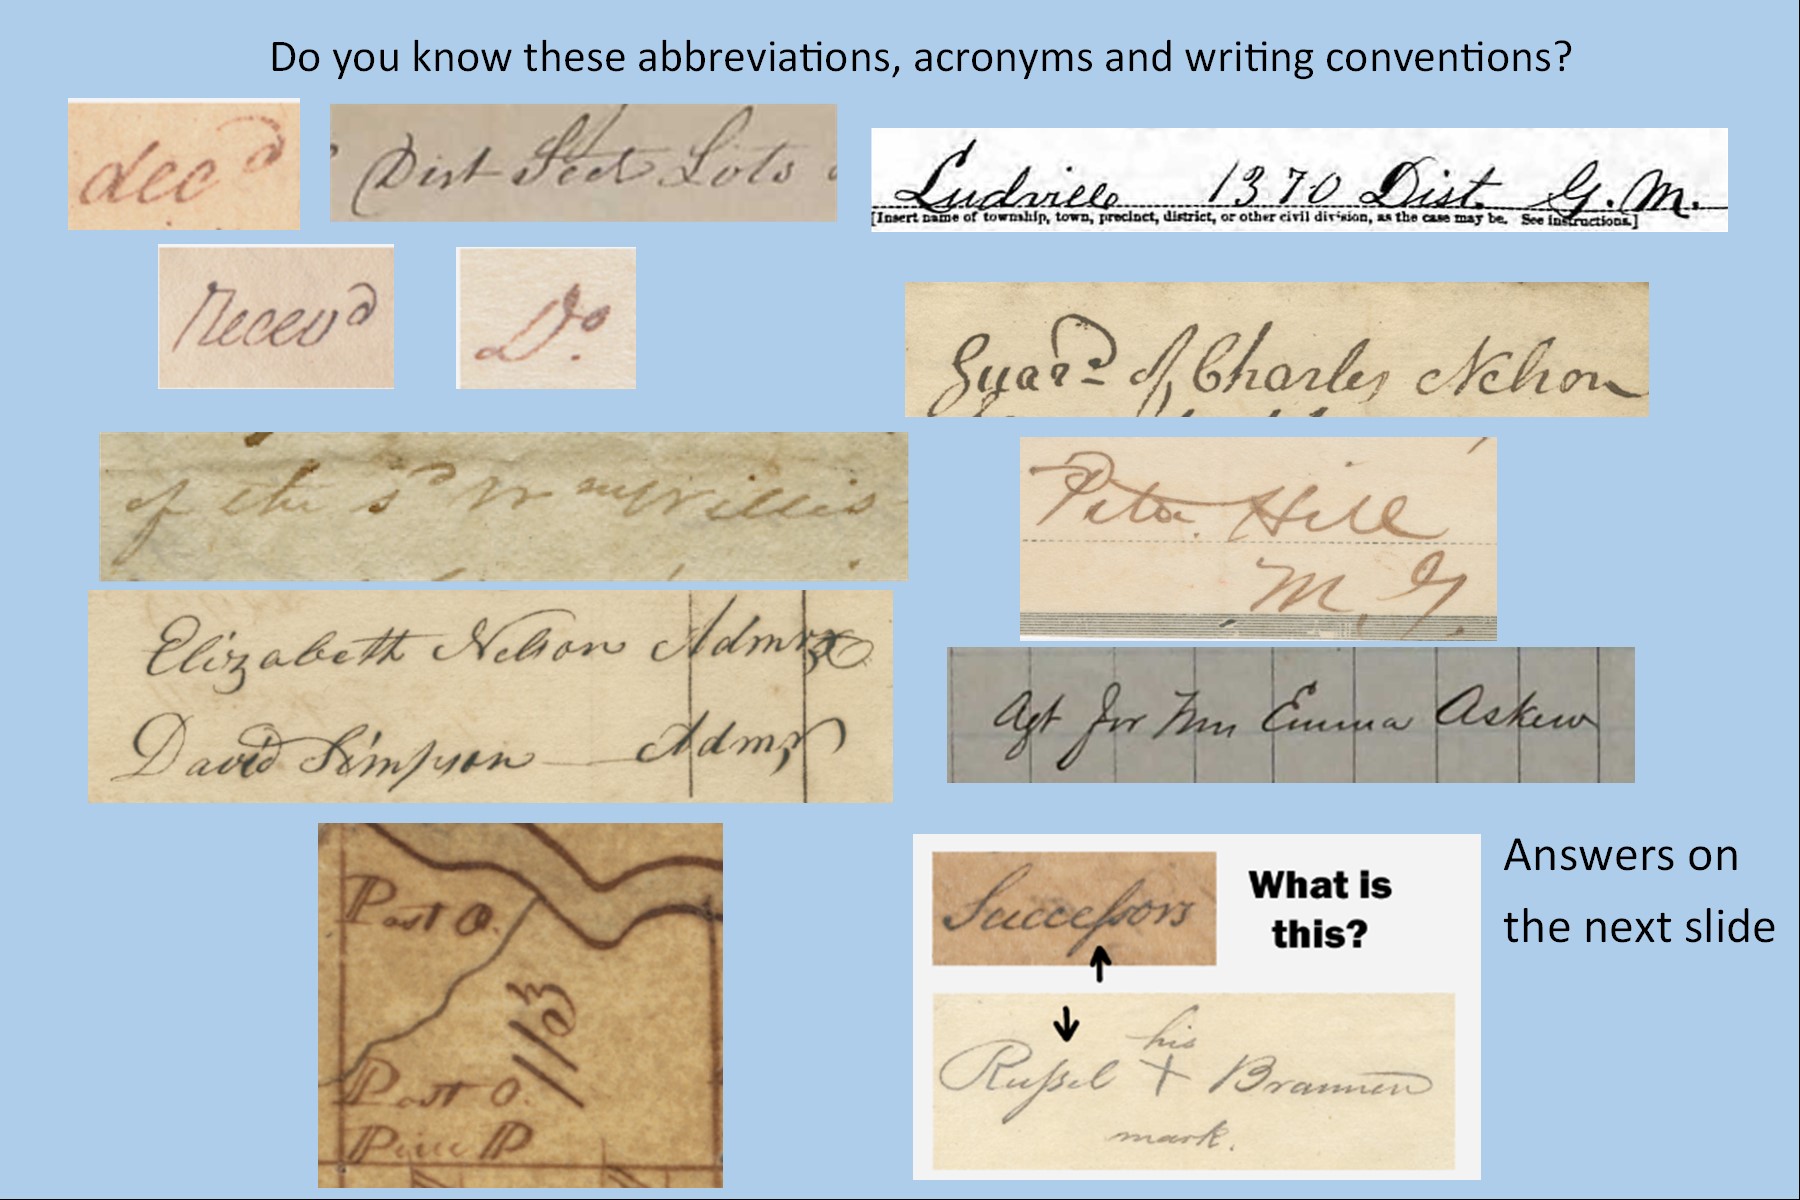 Do you know these abbreviations, acronyms and writing conventions?
decd
Dist Sect Lots
Ludville 1370 Dist. G. M.
[Insert name of township, town, precinct, district, or other civil division, as the case may be. See instructions.]
Recevd
Do.
Guard of Charles Nelson
of the sd Wm Willis
Peter Hill
M. G.
Elizabeth Nelson Admrx
David Simpson Admr
Agt for Mrs Emma Askew
Post O.
1153
Post O.
Pine P
Succeſsors
What is
this?
his
Ruſsel X Brannen
mark.
Answers on
the next slide